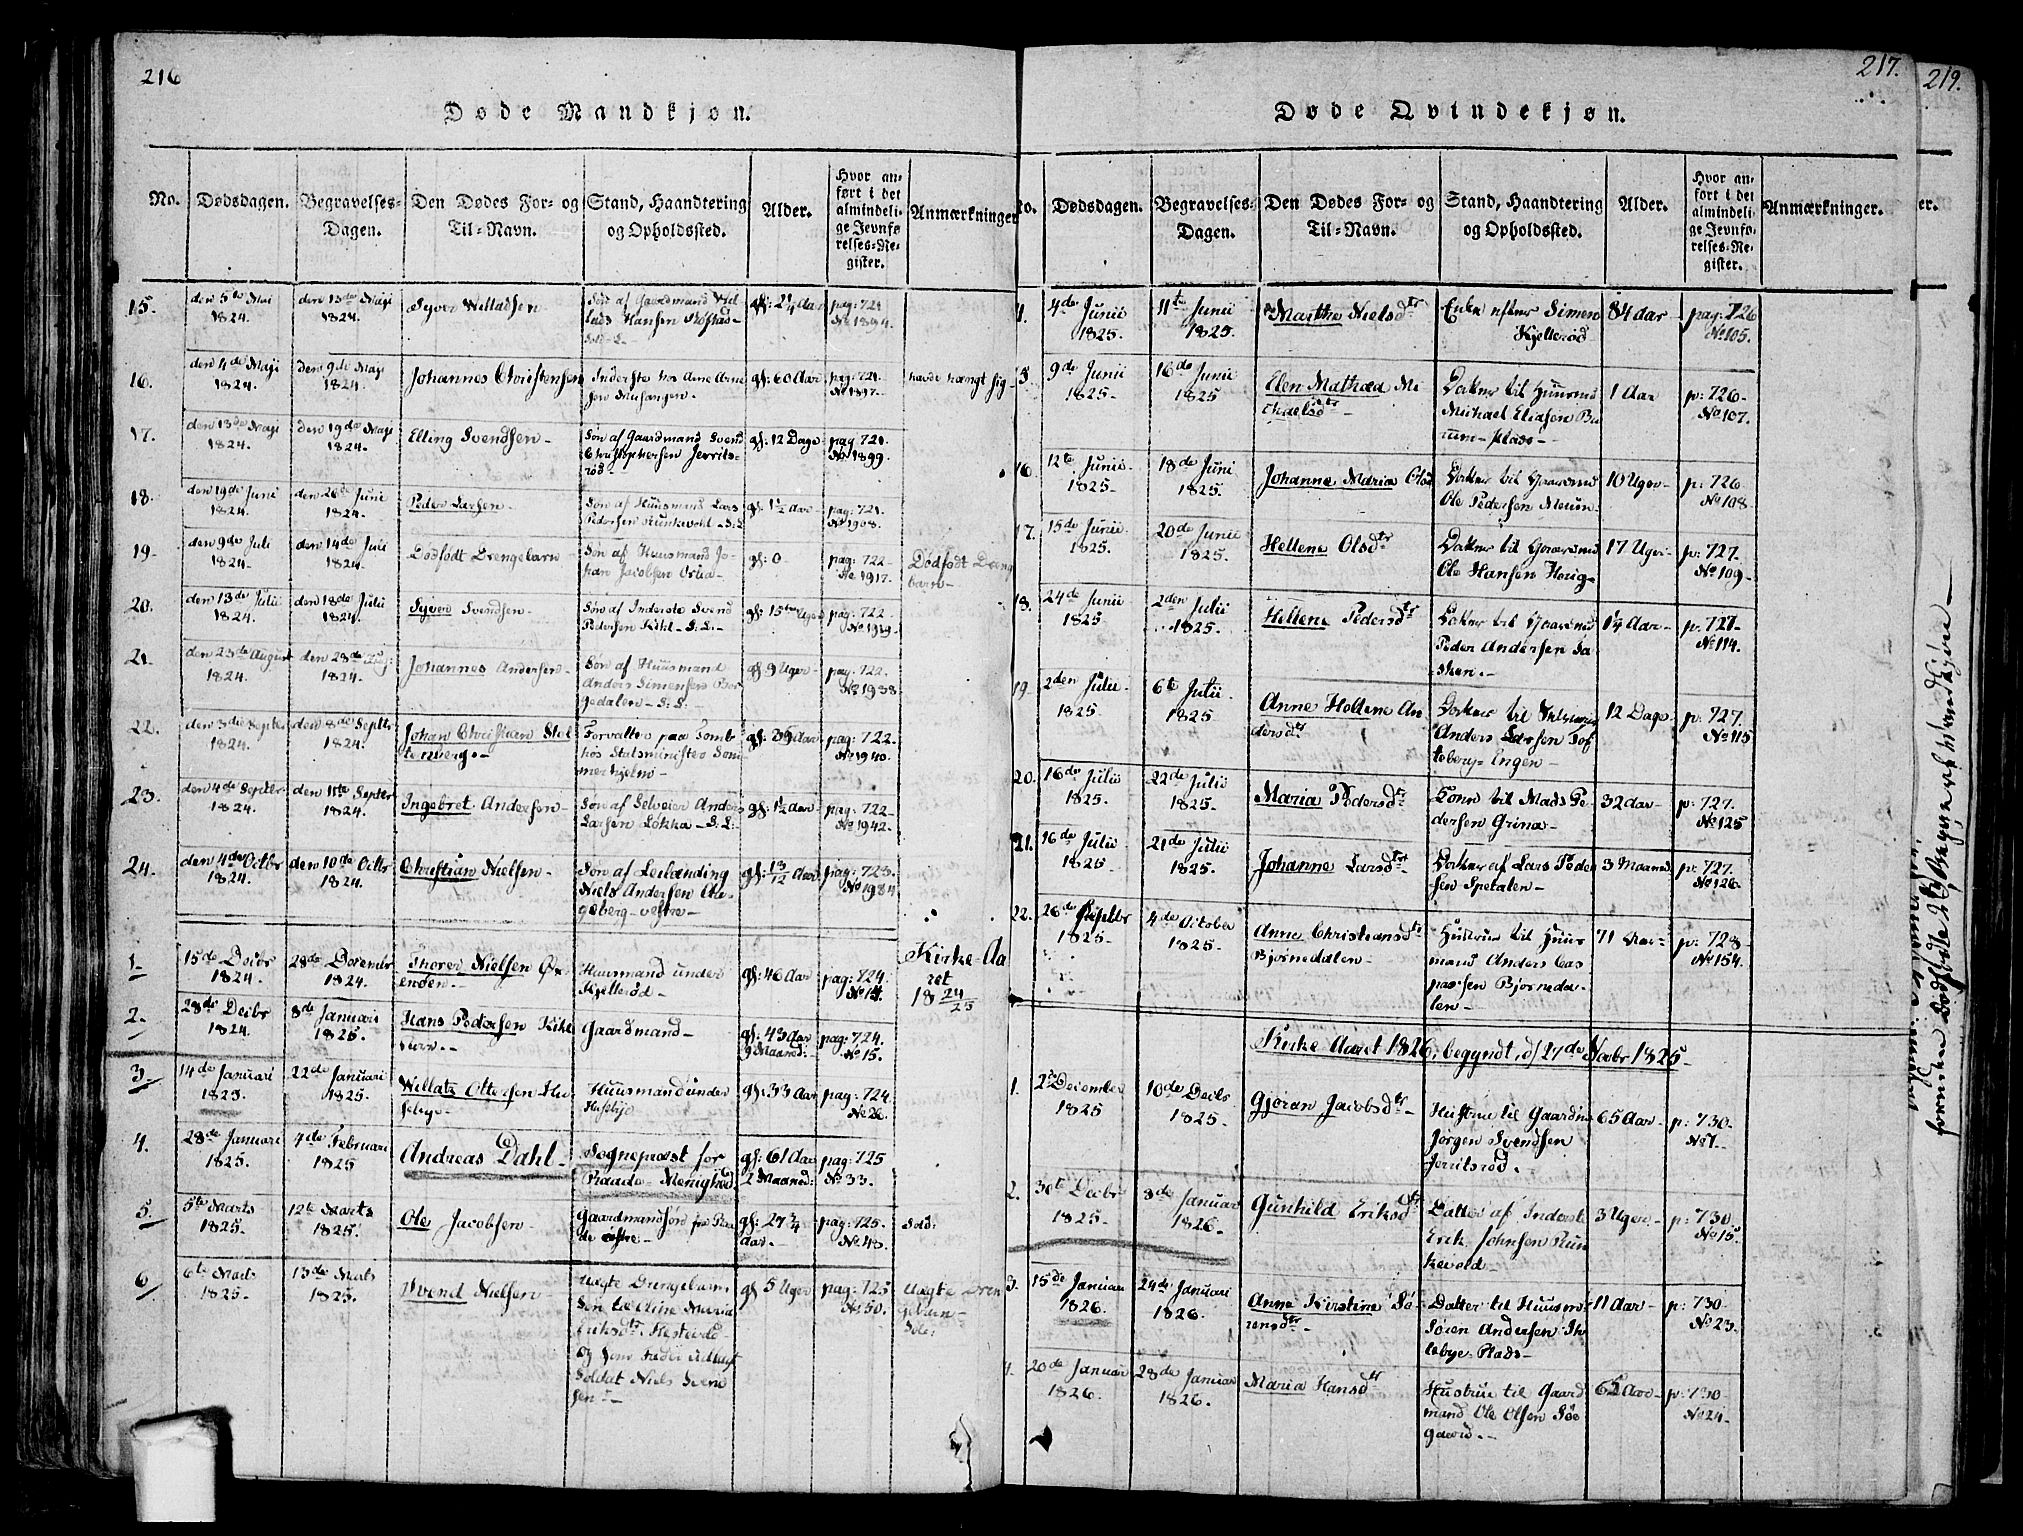 216
Døde Mandkjøn.
No.
Dødsdagen.
Begravelses-
Dagen.
Den Dødes For- og
Til-Navn.
Stand, Haandtering
og Opholdssted.
Alder.
Hvor an-
ført i det
almindeli-
ge Jevnfø-
relses-Re-
gister.
Anmærkninger
15.
den 5te Mai
1824.
den 13de Maji
1824.
Syver Willadsen
Søn af Gaardmand Wil
lads Hansen
gl: 2¼ Aar
pag: 721
No 1894.
16.
den 4de Maji
1824.
den 9de Maji
1824.
Johannes Christensen
Inderste hos Arne Arne
sen
gl: 60 Aar
pag: 721.
No 1897.
havde hængt sig
17.
den 13de Maji
1824.
den 19de Maji
1824.
Elling Svendsen
Søn af Gaardmand Svend
Christophersen Jerrits-
rød
gl: 12 Dage
pag 721.
No 1899.
18.
den 19de Juni
1824.
den 26de Juni
1824.
Peder Larsen
Søn af Huusmand Lars
Pedersen
gl: 1½ Aar
pag: 721.
No 1908.
19.
den 9de Juli
1824.
den 14de Juli
1824.
Dødfødt Drengebarn
Søn af Huusmand Jo-
han Jacobsen
gl: 0
pag: 722
No 1917.
Dødfødt Dreng
barn
20.
den 13de Julii
1824.
den 18de Julii
1824.
Syver Svendsen
Søn af Inderste Svend
Pedersen Kihl
gl: 15 Uger
pag: 722.
No 1919
21.
den 23de August
1824.
den 28de Aug:
1824.
Johannes Andersen
Søn af Huusmand
Anders Simensen
gl: 9 Uger
pag: 722.
No 1938
22.
den 3die Septbr
1824.
den 8de Septbr
1824.
Johan Christian Stol
tenberg
Forvalter paa Tomb
hos Statsminister Som
merhjelm
pag: 722.
No 1940.
23.
den 4de Septbr
1824.
den 11te Septbr
1824.
Ingebret Andersen
Søn af Selveier Anders
Larsen Løkka
gl: 1½ Aar
pag: 722
No 1942.
24.
den 4de Octbr
1824.
den 10de Octbr
1824.
Christian Nielsen
Søn af Leilænding
Niels Andersen
vestre
gl: 13/12 Aar
pag: 723.
No 1984
1.
15de Decbr
1824.
28de Decembr
1824.
Thorer Nielsen
Huusmand under
Kjellerød
gl: 46 Aar
pag: 724.
No 14.
Kirke-Aa
ret
18 24/25
2.
28de Decbr
1824.
8de Januari
1825.
Hans Pedersen Kihl
Gaardmand
gl: 43 Aar
9 Maaned:
pag: 724.
No 15.
3.
14de Januari
1825.
22de Januari
1825.
Willatz Ottersen Hu
sebye
Huusmand under
Husebye
gl: 33 Aar
pag: 724
No 26.
4.
28de Januari
1825.
4de Februari
1825
Andreas Dahl
Sognepræst for
Raade Menighed
gl: 61 Aar
2 Maaned:
pag: 725
No 33.
5.
5te Marts
1825.
12te Marts
1825.
Ole Jacobsen
Gaardmandsøn fra Raa
de østre
gl: 27¾
Aar
pag: 725.
No 48.
Sold:
6.
6te Marts
1825.
13de Marts
1825.
Svend Nielsen
Uægte Drengebarn
Søn til Aline Maria
Eriksdtr
Soldat Niels Svend
sen
gl 5 Uger
pag: 725
No 50.
Uægte Dren
gebarn
217.
Døde Qvindekjøn.
No.
Dødsdagen.
Begravelses-
Dagen.
Den Dødes For- og
Til-Navn.
Stand, Haandtering
og Opholdssted.
Alder.
Hvor an-
ført i det
almindeli-
ge Jevnfø-
relses-Re-
gister.
Anmærkninger.
4de Junii
1825.
11te Junii
1825.
Marthe Nielsdtr
Enke efter Simen
Kjellerød
84 Aar
pag: 726
No 105.
9de Junii
1825.
16de Junii
1825
Elen Mathea Mi
chaelsdtr
Datter til Huusmd
Michael Eliasen
Plads
1 Aar
p: 726
No 107.
16.
12te Junii
1825.
18de Juni
1825.
Johanne Maria Olsd
Datter til Gaardmd
Ole Pedersen
10 Uger
p: 726
No 108.
17.
15de Junii
1825.
20de Junii
1825.
Hellene Olsdtr
Datter til Gaardmd
Ole Hansen Haug
17 Uger
p: 727.
No 109
18.
24de Junii
1825.
2den Julii
1825.
Hellene Pedersdtr
Datter til Gaardmd
Peder Andersen
1¼ Aar
p: 727.
No 114.
19.
2den Julii
1825.
6te Julii
1825.
Anne Hellene An
dersdtr
Datter til
Anders Larsen
Engen
12 Dage
p: 727.
No 115
20.
16de Julii
1825.
22de Julii
1825.
Maria Pedersdtr
Kone til Mads Pe
dersen Grina
32 Aar
p: 727.
No 125
21.
16de Julii
1825.
21de Julii
1825.
Johanne Larsdtr
Datter af Lars Peder
sen Spetalen
3 Maaned
p: 727.
No 126.
22.
26de Septbr
1825.
4de October
1825.
Anne Christiansdtr
Bjørnedalen
Hustrue til Huus
mand Anders Cas
parsen Bjørneda-
len
71 Aar
p: 728
No 154.
Kirke Aaret 1826, begyndt d/ 27de Novbr 1825
1.
2de December
1825
10de Decbr
1825.
Gjøran Jacobsdtr
Hustrue til Gaardm
Jørgen Svendsen
Jerritsrød.
65 Aar
p: 730.
No 7.
2.
30te Decbr
1825.
8de Januar
1826.
Gunhild Eriksdtr
Datter af Inderste
Erik Johnsen Run
kevold
3 Uger
p: 730.
No 15.
3.
15de Januar
1826.
24de Januari
1826.
Anne Kirstine Sø-
rensdtr
Datter til Huusm
Søren Andersen
Plads
11 Aar
p: 730
No 23.
20de Januar
1826.
28de Januar
1826.
Maria Hansdtr
Hustrue til Gaard
mand Ole Olsen Søe
gaard.
65 Aar
p: 730
No 24.
219.
er.